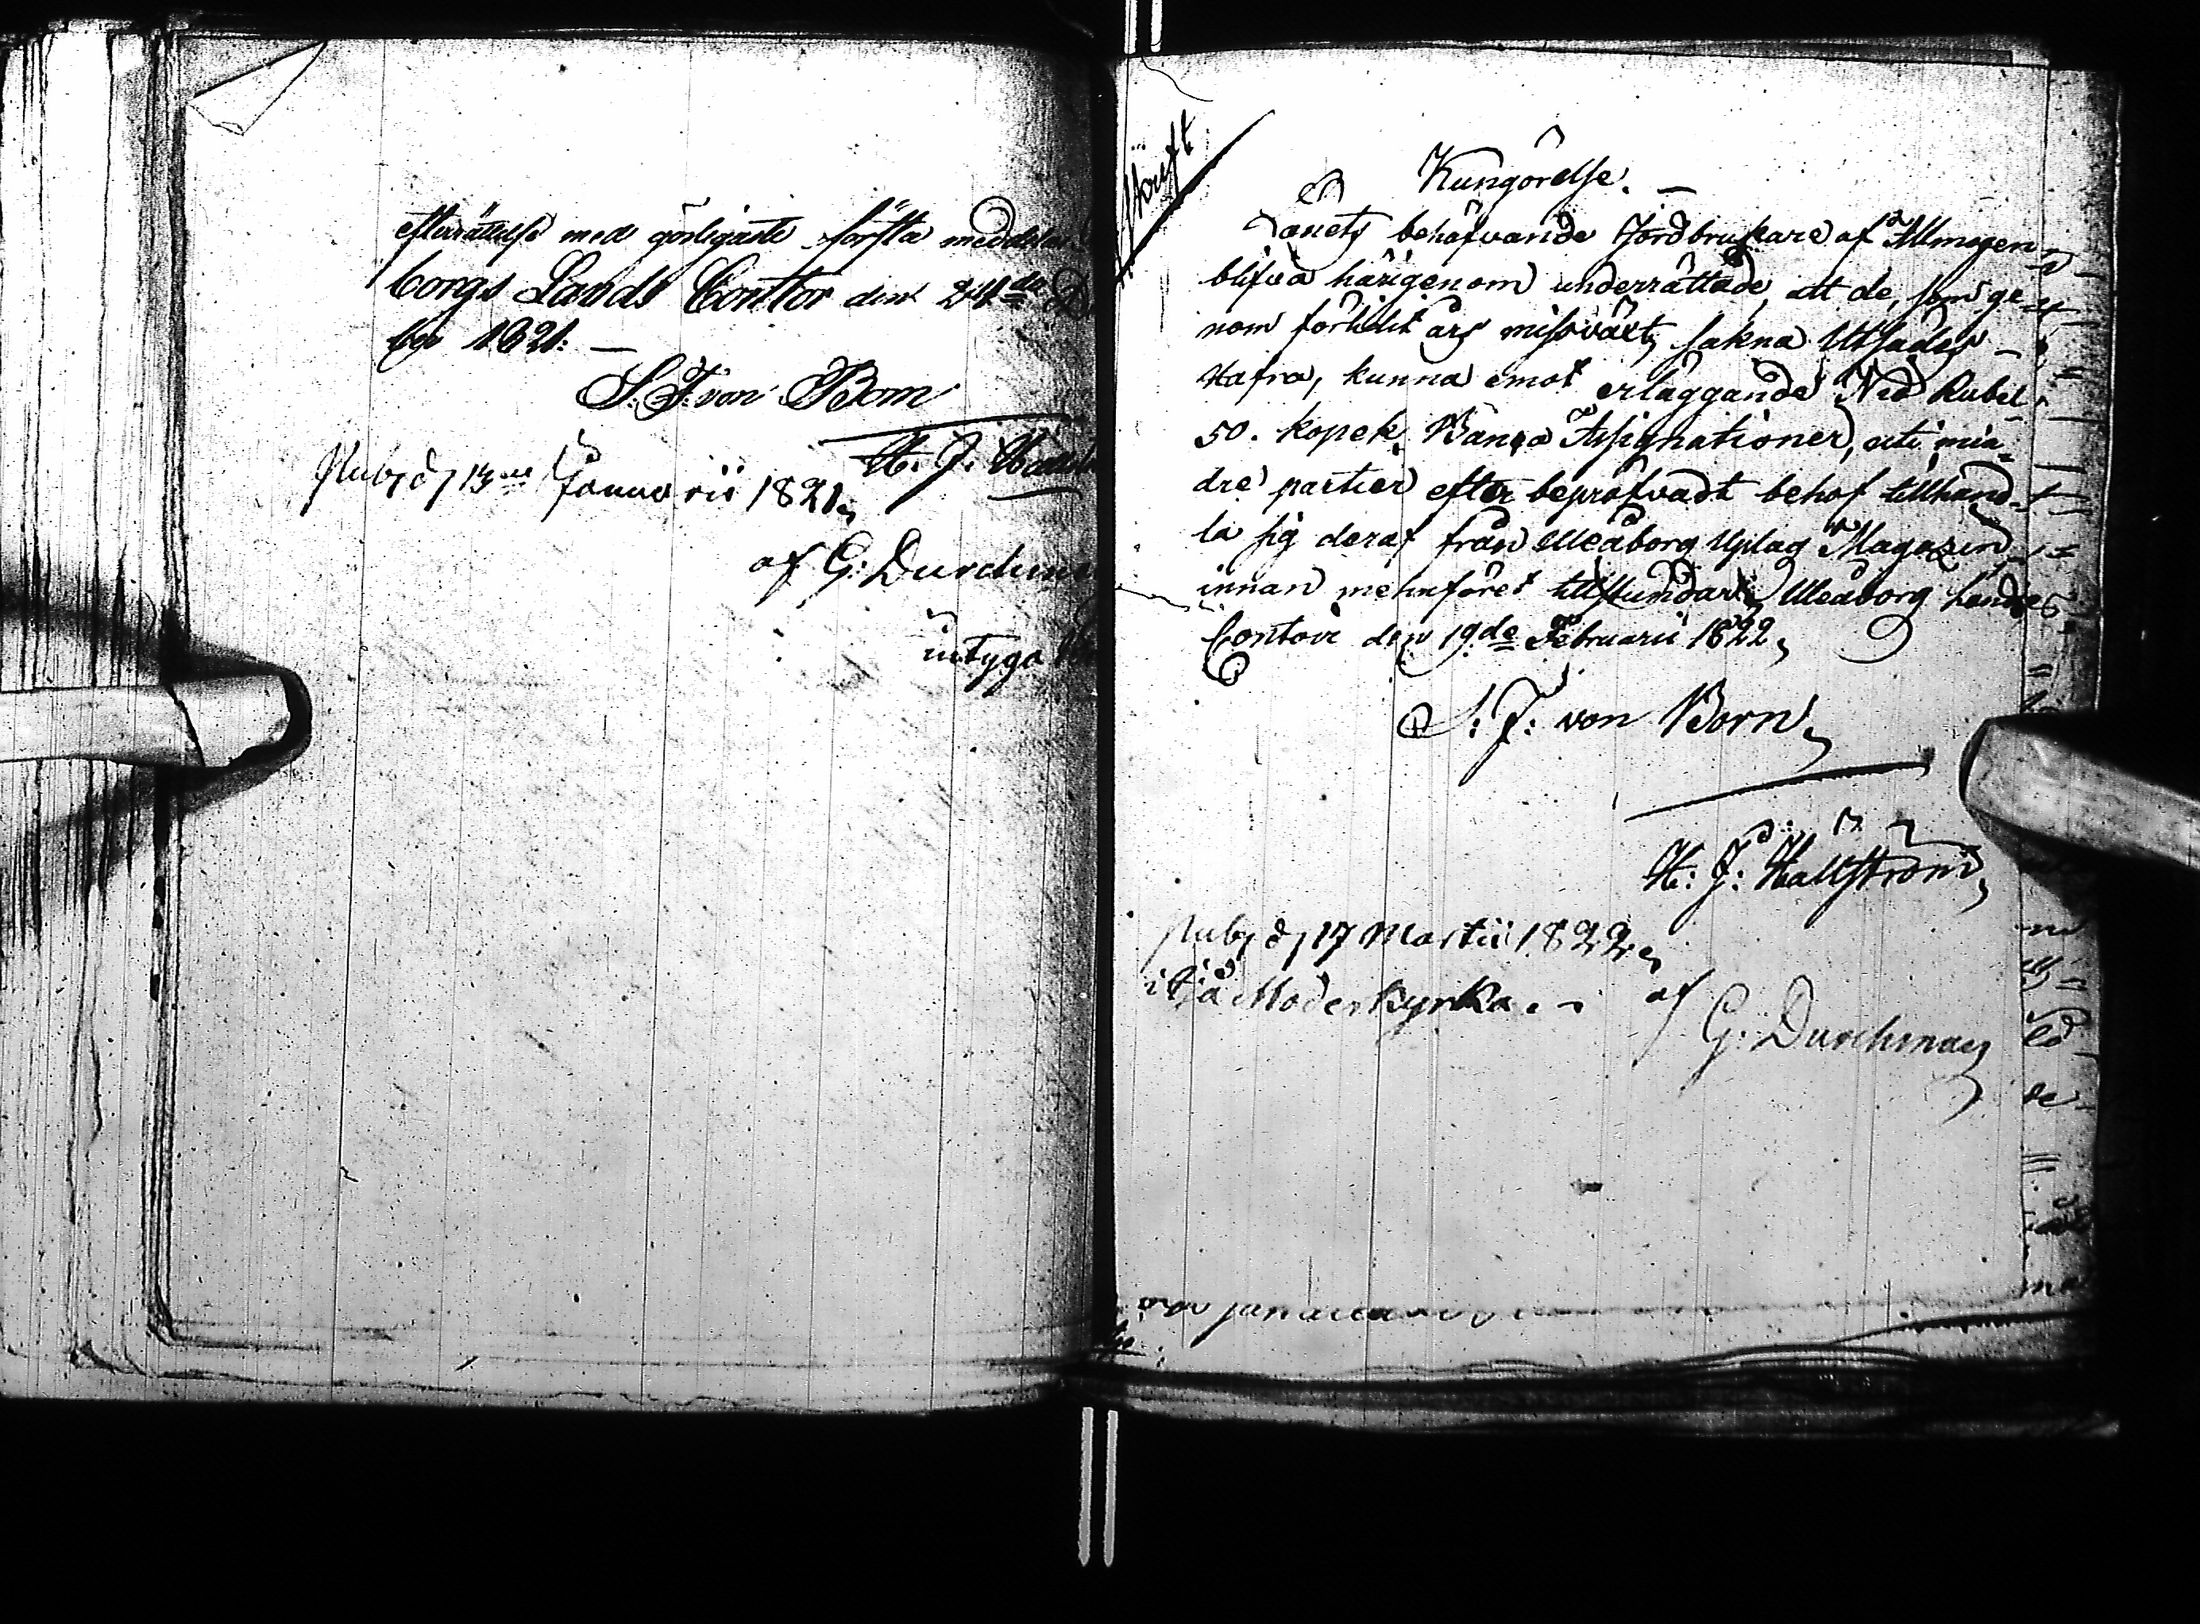 efterrättelse med görligaste första meddelas
borgs Lands Contor den 24de D
ber 1821. —
S. F. von Born
H. J.
Publ. d. 13de Januarii 1821,
af G: Durchman
intyga
Afskrift
Kungörelse. —
Länets behöfvande Jordbrukare af Allmogen
blifva härigenom underrättade, att de, som ge-
nom förlidit års missväxt, sakna Utsädes-
Hafra, kunna emot erläggande Nio Rubel
50. kopek Banco Assignationer, uti min-
dre partier efter bepröfvadt behof tillhand-
la sig deraf från Uleåborg Uplag Magazin,
innan menföret tillstundar. Uleåborg Lands
Contoir den 19de Februarii 1822,
S: F: von Born,
H: J: Hallström,
Publ. d. 17 Martii 1822,
i Ijå Moderkyrka. - af
G: Durchman